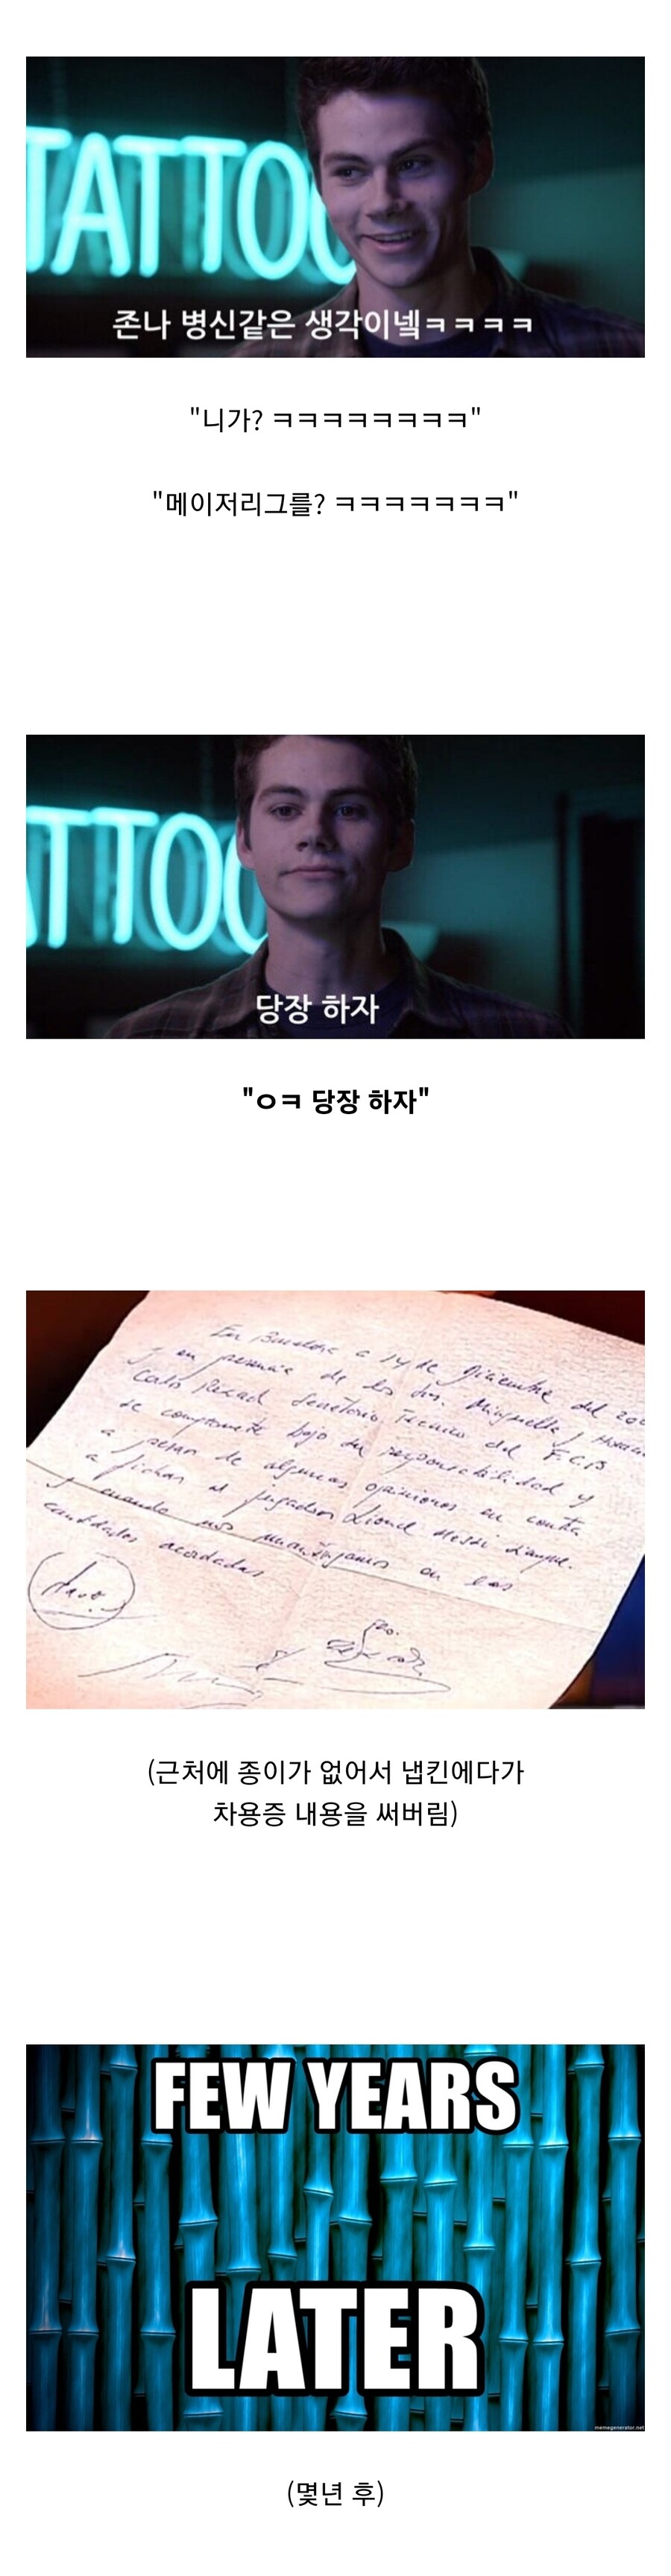 TATTOO
존나 병신같은 생각이넼ㅋㅋㅋㅋ
"니가? ㅋㅋㅋㅋㅋㅋㅋㅋ"
"메이저리그를? ㅋㅋㅋㅋㅋㅋㅋ"
ATTOO
당장 하자
"ㅇㅋ 당장 하자"
a 14 de Diciembre del 20
en presencia de los Srs. Minguella y
Carlos Rexach Secretario Técnico del F.C.B
se compromete bajo su responsabilidad y
a pesar de algunas opiniones en contra
a fichar al jugador Lionel Messi
y cuando nos mantengamos en las
cantidades acordadas
(근처에 종이가 없어서 냅킨에다가
차용증 내용을 써버림)
FEW YEARS
LATER
memegenerator.net
(몇년 후)